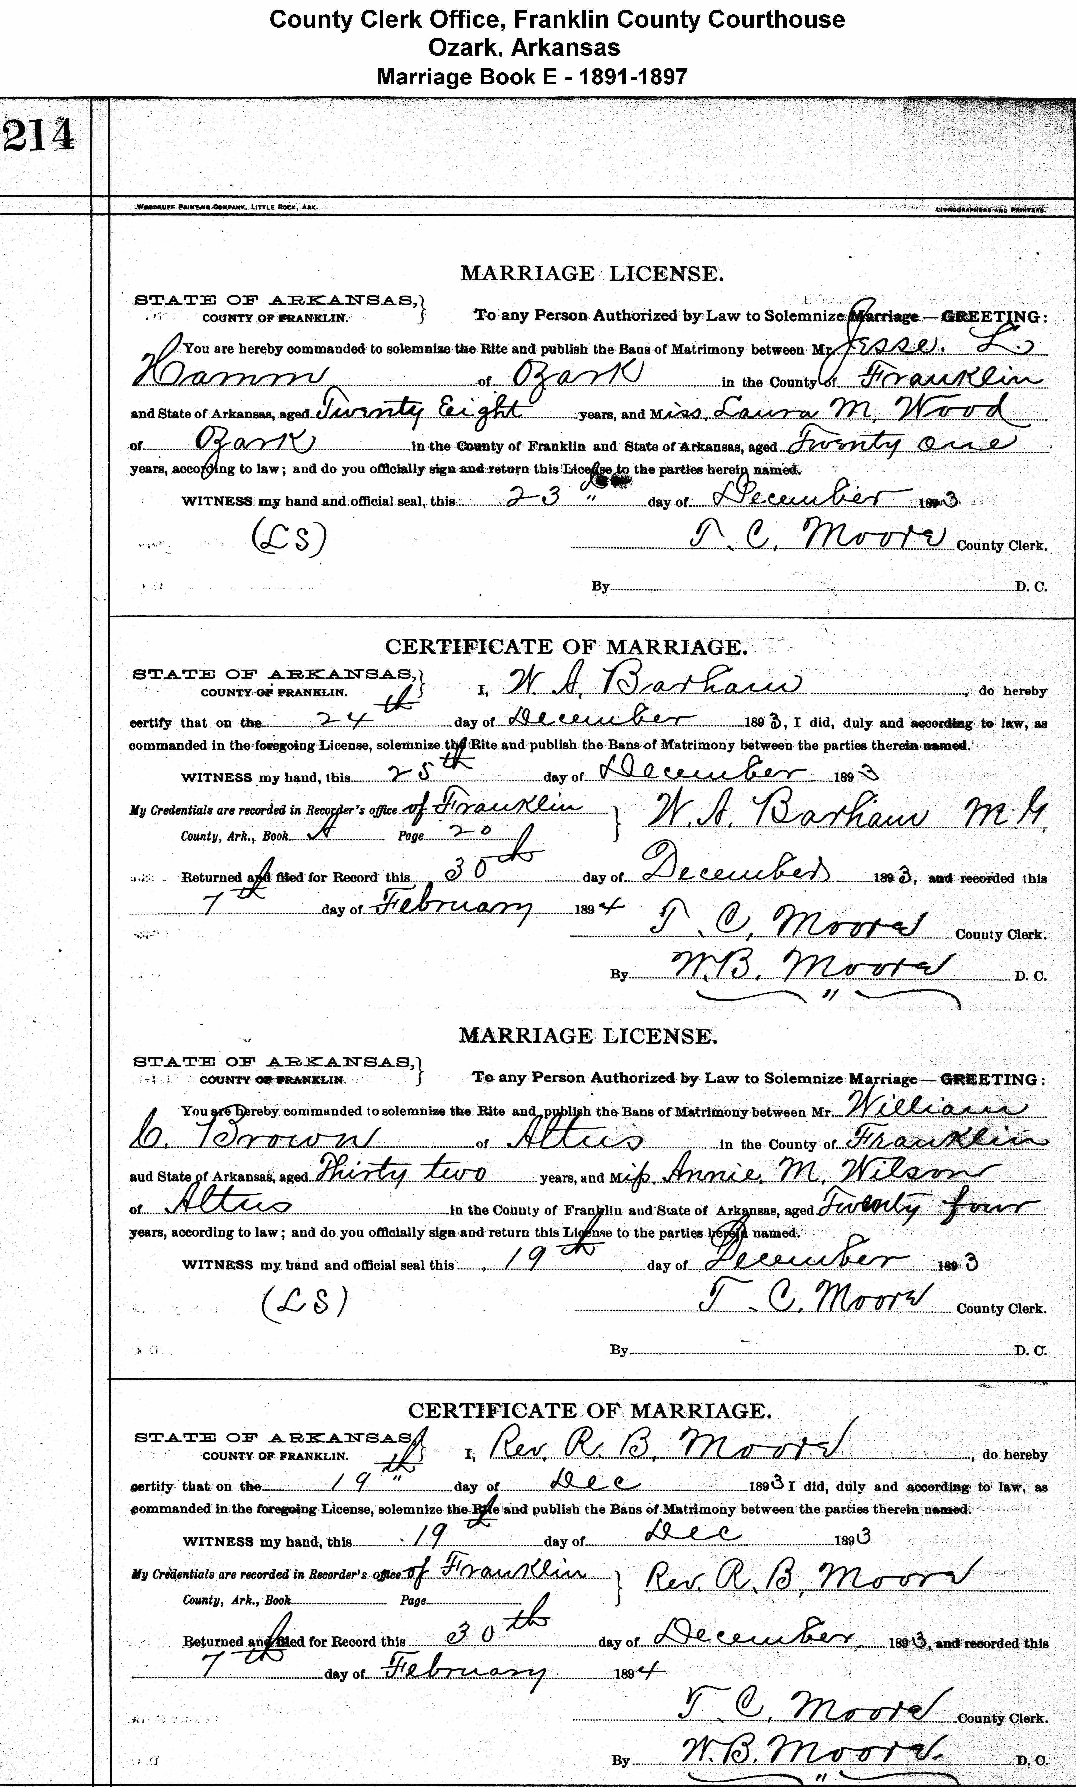 County Clerk Office, Franklin County Courthouse
Ozark, Arkansas
Marriage Book E - 1891-1897
214
WOODRUFF PRINTING COMPANY, LITTLE ROCK, ARK. LITHOGRAPHERS AND PRINTERS.
MARRIAGE LICENSE.
STATE OF ARKANSAS,}
COUNTY OF FRANKLIN. To any Person Authorized by Law to Solemnize Marriage—GREETING:
You are hereby commanded to solemnize the Rite and publish the Bans of Matrimony between Mr. Jesse. L.
Hamm of Ozark in the County of Franklin
and State of Arkansas, aged Twenty Eight years, and Miss. Laura M. Wood
of Ozark in the County of Franklin and State of Arkansas, aged Twenty one
years, according to law; and do you officially sign and return this License to the parties herein named.
WITNESS my hand and official seal, this 23" day of December 1893
(LS) T. C. Moore County Clerk.
By D. C.
CERTIFICATE OF MARRIAGE.
STATE OF ARKANSAS,}
COUNTY OF FRANKLIN. I, W. A. Barham, do hereby
certify that on the 24th day of December 1893, I did, duly and according to law, as
commanded in the foregoing License, solemnize the Rite and publish the Bans of Matrimony between the parties therein named.
WITNESS my hand, this 25th day of December 1893
My Credentials are recorded in Recorder's office of Franklin } W. A. Barham M.G.
County, Ark., Book A Page 20
Returned and filed for Record this 30th day of December 1893, and recorded this
7th day of February 1894 T. C. Moore County Clerk.
By W.B. Moore D. C.
"
MARRIAGE LICENSE.
STATE OF ARKANSAS,}
COUNTY OF FRANKLIN. To any Person Authorized by Law to Solemnize Marriage—GREETING:
You are hereby commanded to solemnize the Rite and publish the Bans of Matrimony between Mr. William
C. Brown of Altus in the County of Franklin
and State of Arkansas, aged Thirty two years, and Miss. Annie. M. Wilson
of Altus in the County of Franklin and State of Arkansas, aged Twenty four
years, according to law; and do you officially sign and return this License to the parties herein named.
WITNESS my hand and official seal this 19th day of December 1893
(LS) T. C. Moore County Clerk.
By D. C.
CERTIFICATE OF MARRIAGE.
STATE OF ARKANSAS
COUNTY OF FRANKLIN. I, Rev. R. B. Moore, do hereby
certify that on the 19th day of Dec 1893 I did, duly and according to law, as
commanded in the foregoing License, solemnize the Rite and publish the Bans of Matrimony between the parties therein named.
WITNESS my hand, this 19 day of Dec 1893
My Credentials are recorded in Recorder's office of Franklin } Rev. R. B. Moore
County, Ark., Book Page
Returned and filed for Record this 30th day of December 1893, and recorded this
7th day of February 1894
T. C. Moore County Clerk.
By W.B. Moore. D. C.
"